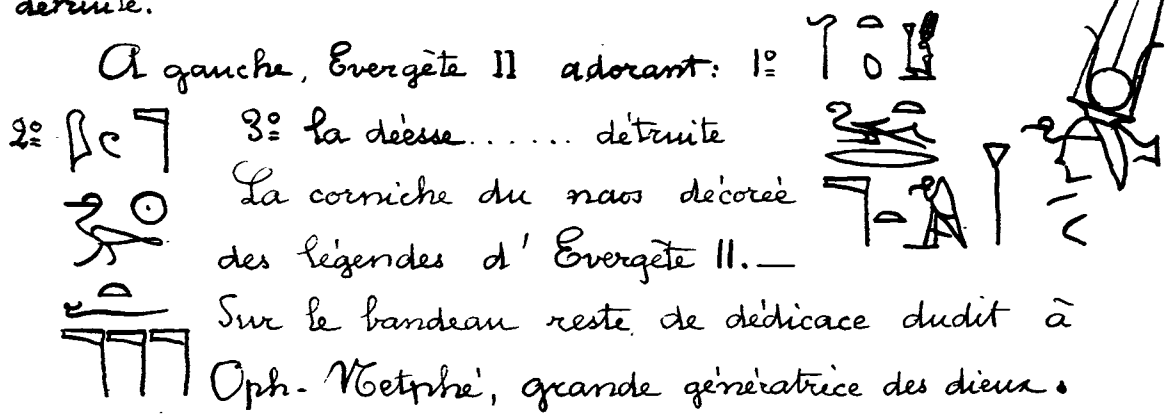 détruite.
A gauche, Evergète II adorant: 1º
2º 3º la déesse...... détruite
La corniche du naos décorée
des légendes d'Evergète II.—
Sur le bandeau reste de dédicace dudit à
Oph-Netphé, grande génératrice des dieux.